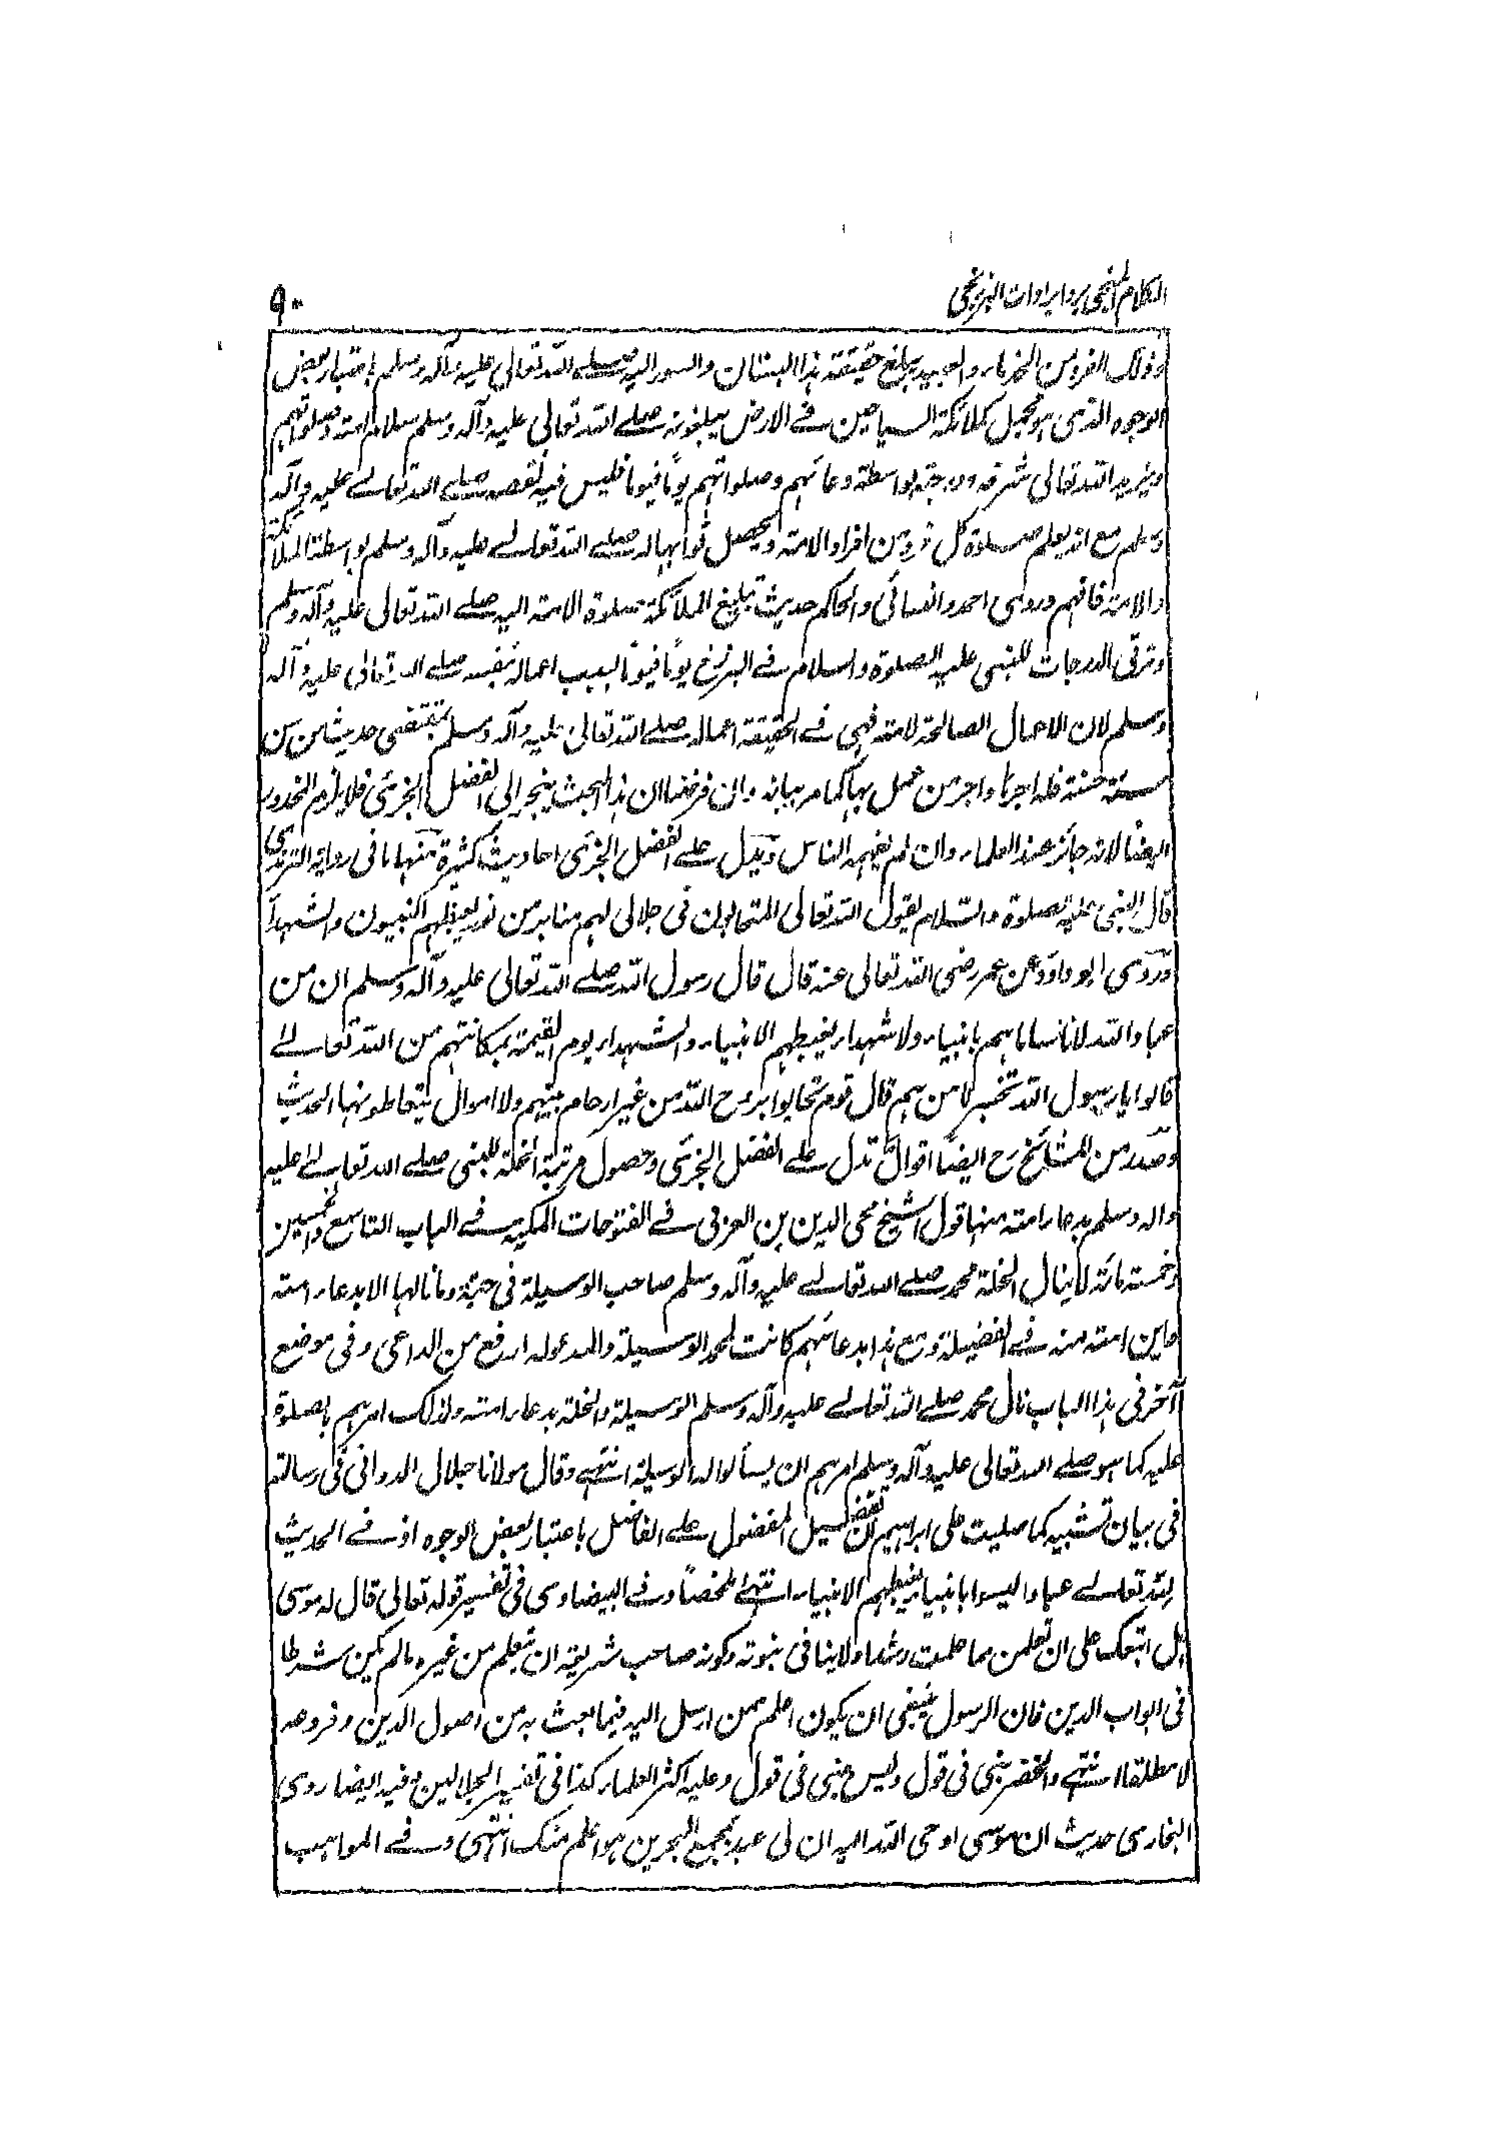 الكلام المنجى برد ايرادات البرزنجى
٩٠
وذلك الفرد من الخدماء والعبيد يبلغ حقيقة هذا البستان والسور اليه صلے الله تعالى عليه وآله وسلم باعتبار بعض
الوجوه الذى هو مجمل كملائكة السياحين فے الارض يبلغونه صلے الله تعالى عليه وآله وسلم سلام امته وصلوٰتهم
ويزيد الله تعالى شرفه ودرجته بواسطة دعائهم وصلواتهم يومًا فيومًا فليس فيه نقصه صلے الله تعالے عليه وآله
وسلم مع انه يعلم صلوة كل فرد من افراد الامة ويحصل ثوابها له صلے الله تعالے عليه وآله وسلم بواسطة الملائكة
والامة فافهم وروى احمد والنسائى والحاكم حديث تبليغ الملائكة صلوة الامة اليه صلے الله تعالى عليه وآله وسلم
وترقى الدرجات للنبى عليه الصلوة والسلام فے البرزخ يومًا فيومًا بسبب اعماله بنفسه صلے الله تعالى عليه وآله
وسلم لان الاعمال الصالحة لامته فهى فے الحقيقة اعماله صلے الله تعالى عليه وآله وسلم بمقتضى حديث من سن
سنة حسنة فله اجرها واجر من عمل بها كما مر بيانه وان فرضنا ان هذا البحث ينجر الى الفضل الجزئى فلا يلزم المحذور
ايضا لانه جائز عند العلماء وان لم يفهمه الناس ويدل علے الفضل الجزئى احاديث كثيرة منها ما فى رواية الترمذى
قال النبى عليه الصلوة والسلام يقول الله تعالى المتحابون فى جلالى لهم منابر من نور يغبطهم النبيون والشهدآء
وروى ابو داود عن عمر رضى الله تعالى عنه قال قال رسول الله صلے الله تعالى عليه وآله وسلم ان من
عباد الله لاناسا ما هم بانبياء ولا شهداء يغبطهم الانبياء والشهداء يوم القيمة بمكانتهم من الله تعالے
قالوا يا رسول الله تخبرنا من هم قال قوم تحابوا بروح الله من غير ارحام بينهم ولا اموال يتعاطونها الحديث
وصدر من المشائخ رح ايضا اقوال تدل علے الفضل الجزئى وحصول مرتبة الخلة للنبى صلے الله تعالے عليه
واله وسلم بدعاء امته منها قول الشيخ محى الدين بن العربى فے الفتوحات المكية فے الباب التاسع والخمسين
وخمسة مائة لا ينال الخلة محمد صلے الله تعالے عليه وآله وسلم صاحب الوسيلة فى جنته وما نالها الا بدعاء امته
واين امته منه فے الفضيلة ومع هذا بدعائهم كانت لمحمد الوسيلة والمدعو له ارفع من الداعى وفى موضع
آخر فى هذا الباب نال محمد صلے الله تعالے عليه وآله وسلم الوسيلة والخلة بدعاء امته ولذلك امرهم بالصلوة
عليه كما هو صلے الله تعالى عليه وآله وسلم امرهم ان يسألوا له الوسيلة انتهے وقال مولانا جلال الدوانى فى رسالته
فى بيان تشبيه كما صليت على ابراهيم ان تفضيل المفضول علے الفاضل باعتبار بعض الوجوه اذ فے الحديث
لله تعالے عبادا ليسوا بانبياء يغبطهم الانبياء انتهے ملخصًا وفے البيضاوى فى تفسير قوله تعالى قال له موسى
هل اتبعك على ان تعلمن مما علمت رشدا ولا ينافى نبوته وكونه صاحب شريعة ان يتعلم من غيره مالم يكن شرطا
فى ابواب الدين فان الرسول ينبغى ان يكون اعلم ممن ارسل اليه فيما بعث به من اصول الدين وفروعه
لا مطلقا انتهے والخضر نبى فى قول وليس بنبى فى قول وعليه اكثر العلماء كذا فى تفسير الجلالين وفيه ايضا روى
البخارى حديث ان موسى اوحى الله اليه ان لى عبد بمجمع البحرين هو اعلم منك انتهى وفے المواهب